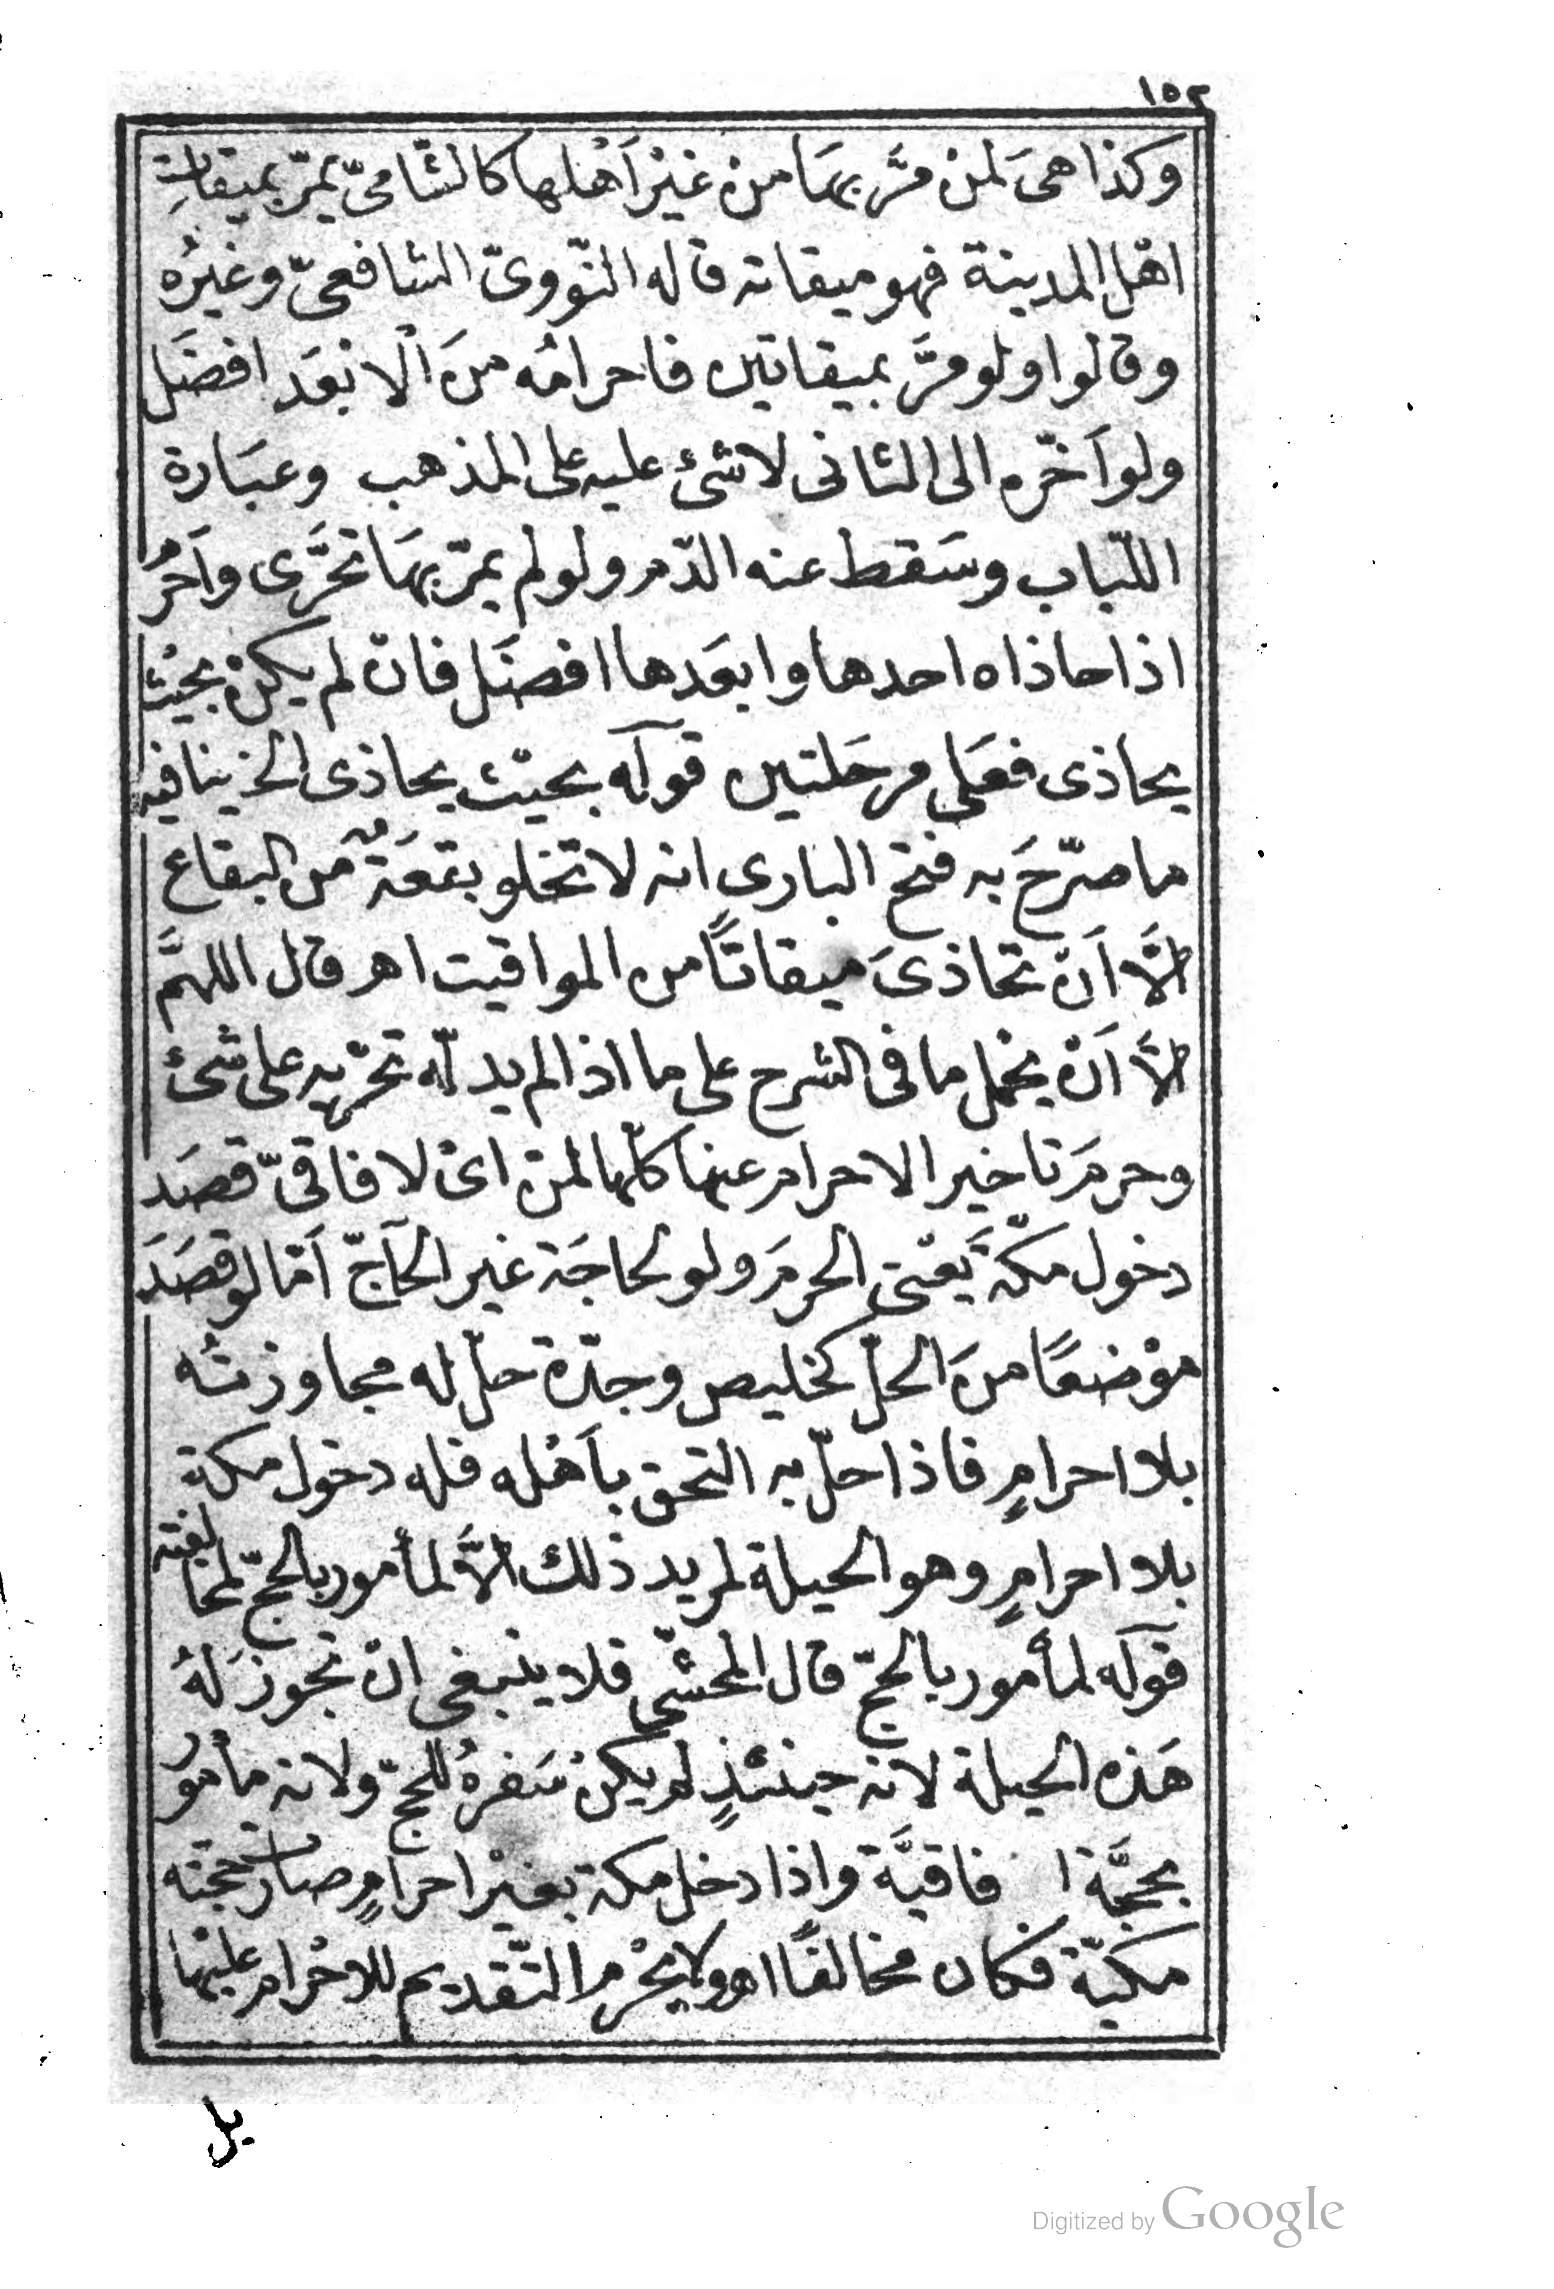 ١٥٢
وكذا هىَ لمنْ مرَّ بهَا منْ غيْرِ اَهْلها كالشّامىّ يمرّ بميقاتِ
اهْل المدينة فهو ميقاته قاله النّووىّ الشافعىّ وغيرُه
وقالوا ولو مرَّ بميقاتين فاحرامُه منَ الْابْعَد افضَل
ولو اَخّره الى الثانى لا شئ عليه على المذهب وعبَارة
اللّباب وسَقط عنه الدّم ولو لم يمرّ بهَا تحَرَّى واَحْرَم
اذا حاذاه احدها وابعَدها افضَل فان لم يكنْ بحيْث
يحاذى فعَلى مرحَلتين قوله بحيْث يحاذى الخ ينافيه
ما صرّحَ به فتح البارى انه لا تخلو بقعَةٌ من البقاع
الاَّ اَنْ تحاذىَ ميقاتاً من المواقيت اهـ قال اللهمَّ
الاَّ اَنْ يحْمل ما فى الشرح على ما اذا لم يدلّه تحرّيه على شئ
وحرمَ تاخير الاحرام عنها كلّها لمنْ اىْ لافاقىّ قصَد
دخول مكّة يَعْنى الحرمَ ولو لحاجَة غير الحَاجّ اَمّا لو قصَدَ
موْضعًا منَ الحلّ كخليص وجدّة حلّ له مجاوزتُه
بلا احرامٍ فاذا حلّ به التحق باَهْله فله دخول مكة
بلا احرامٍ وهو الحيلة لمريد ذلك الاَّ لمأمور بالحجّ لمخالفته
قوله لمأمور بالحجّ قال المحشّى فلا ينبغى ان تجوز لهُ
هَذه الحيلة لانه حينئذٍ لم يكنْ سَفرهُ للحجّ ولانه مأمورٌ
بحجَّة ا فاقيَّة واذا دخل مكة بغيْر احرامٍ صارت حجّته
مكيّة فكان مخالفًا اهـ ولا يحْرم التّقديم للاحْرام عليْها
بل
Digitized by Google